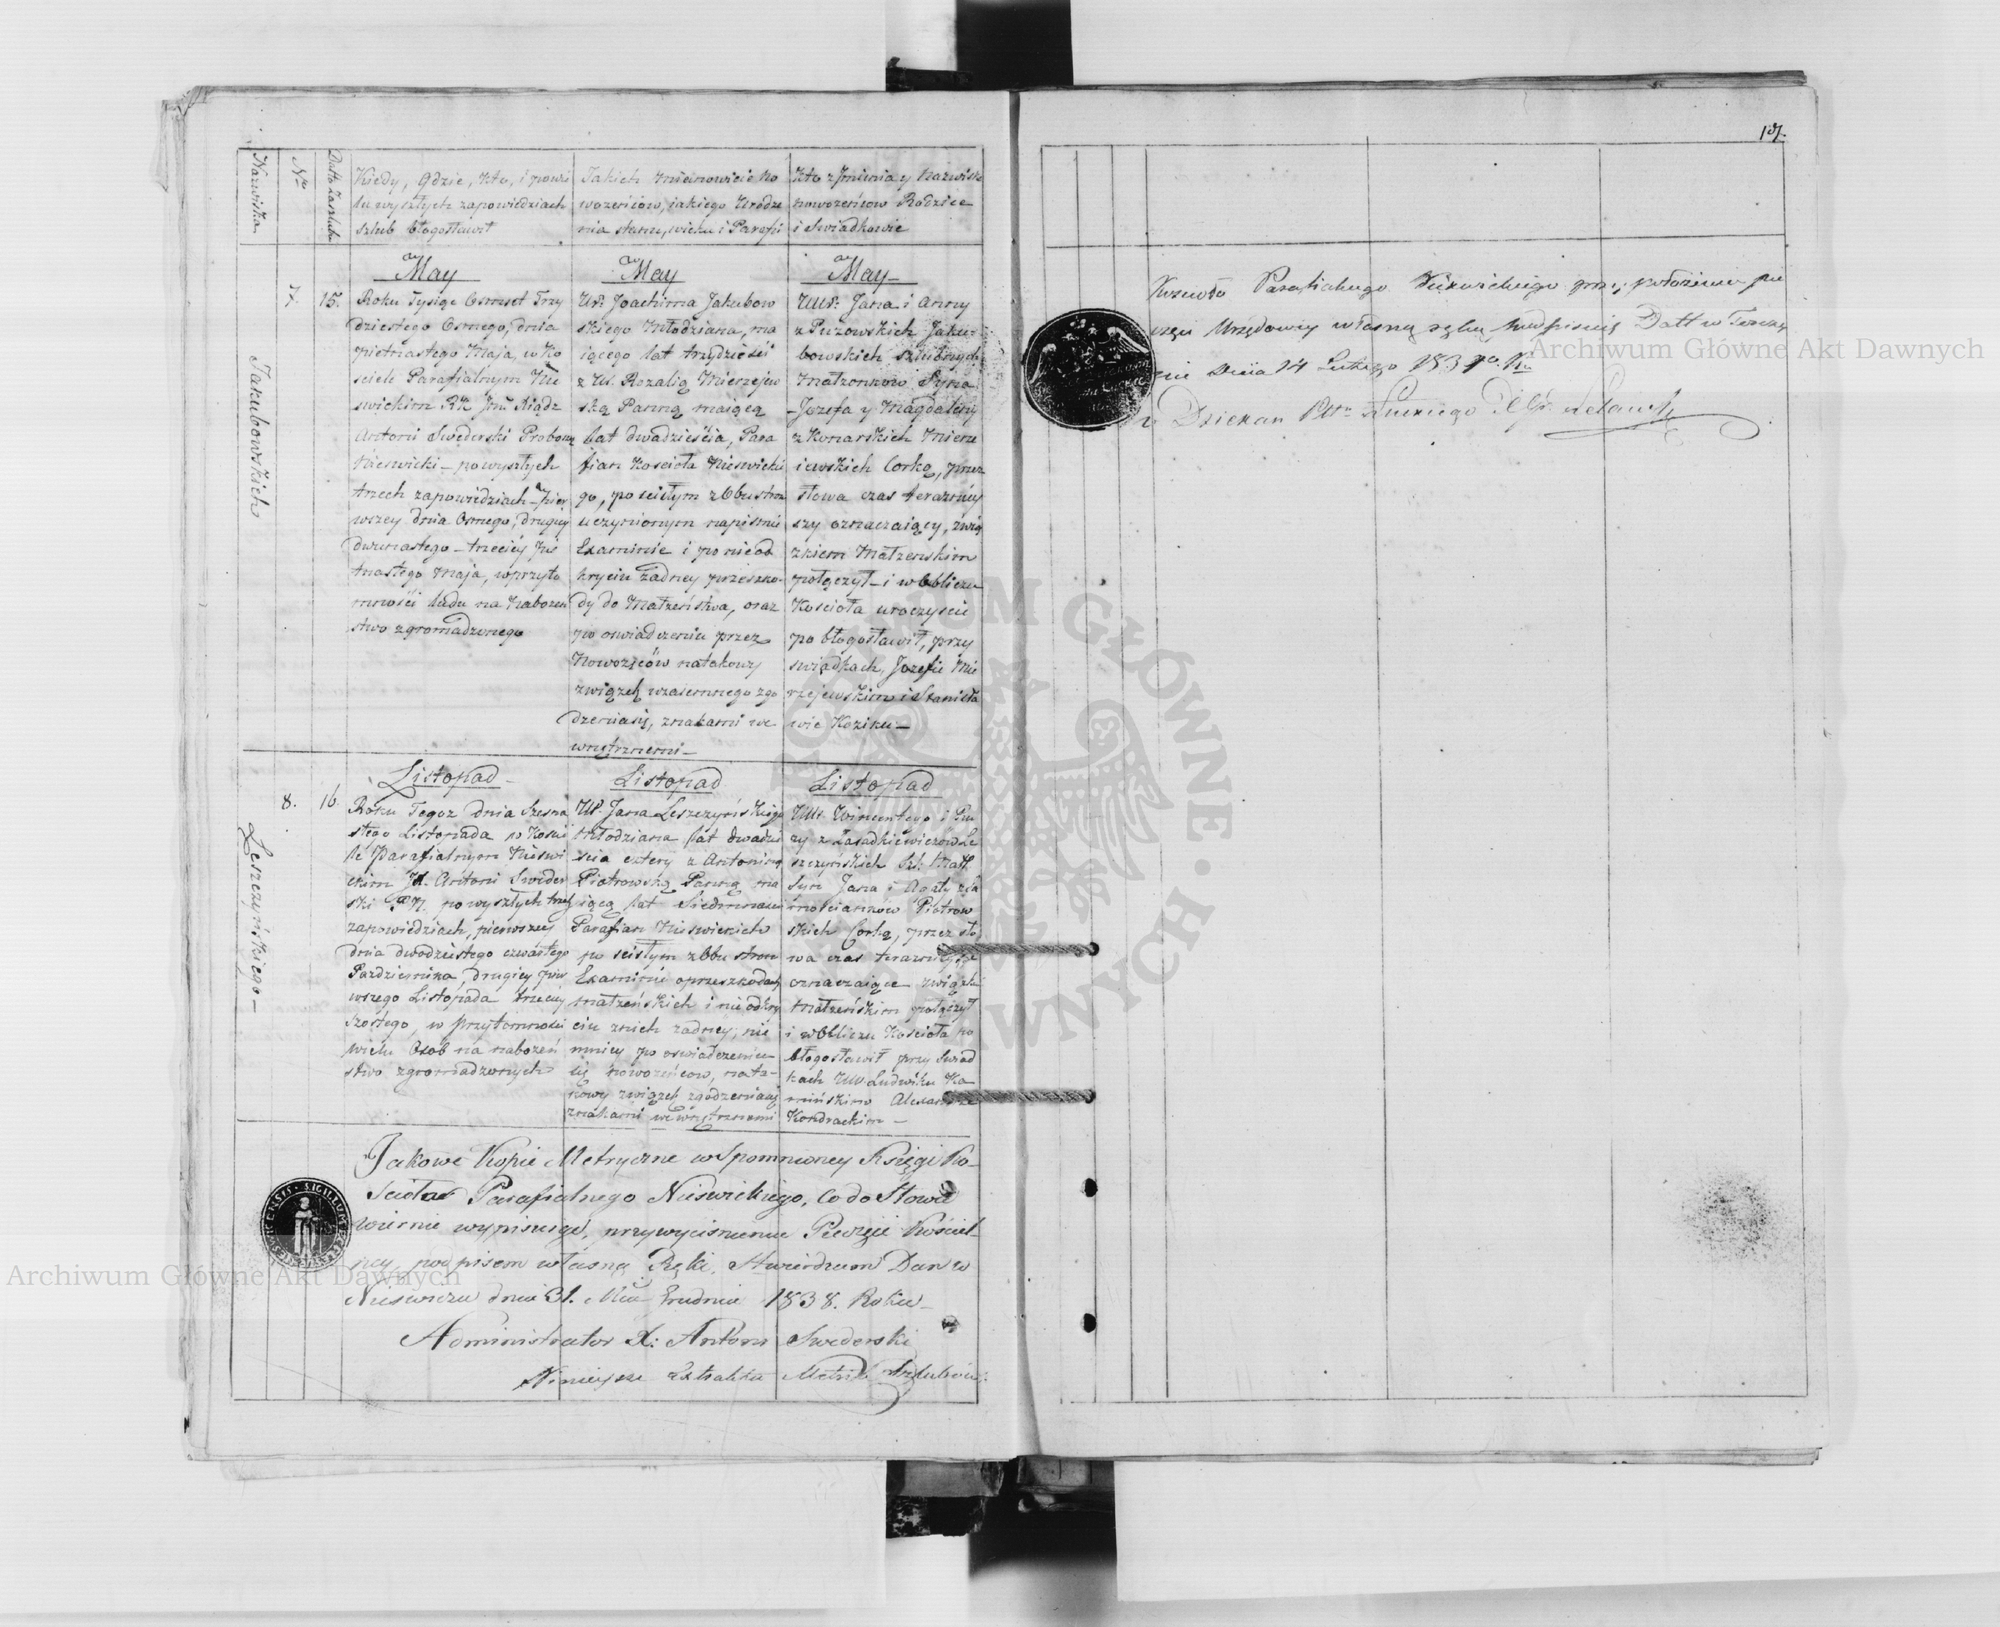 137.
Nazwiska
Nro
Datta zaszłych
Kiedy, Gdzie, Kto, i powi
lu wyszłych zapowiedziach
szlub błogosławił
Jakich mianowicie No
wozeńców, iakiego Urodze
nia stanu, wieku i Parafii
Kto z Jmienia y Nazwiska
nowozeńcow Rodzice
i Swiadkowie
7.
15.
Jakubowskich
May
Roku Tysiąc Osmset Trzy
dziestego Osmego, dnia
pietnastego Maja, w Ko
sciele Parafialnym Nie
swickim
Antoni Swederski Proboszcz
Nieswicki – po wyszłych
trzech zapowiedziach – Pier
wszey dnia Osmego, drugiey
dwunastego – trzeciey pie
tnastego Maja, w przyto
mności ludu na Nabożeń
stwo zgromadzonego
May
Ur. Joachima Jakubow
skiego Młodziana, ma
iącego lat trzydzieści
z Ur. Rozalią Mierzejew
ską Panną maiącą
lat dwadzieścia, Para
fian Kościoła Nieswickie
go, po scisłym z Obustron
uczynionym napismie
Examinie i po nie od
kryciu żadney przeszko-
dy do Małżeństwa, oraz
po oswiadczeniu przez
Nowozeców natakowy
związek wzaiemnego zgo
dzenia się, znakami ze
wnętrznemi –
May
UUr. Jana i Anny
z Puzowskich Jaku-
bowskich szlubnych
Małżonkow Syna
– Jozefa y Magdaleny
z Konarskich Mierze
iewskich Corką, przez
słowa czas terazniey
szy oznaczaiący, zwią
zkiem Małżenskim
połączył – i w Obliczu
Kościoła uroczyscie
po błogosławił, przy
swiadkach, Jozefie Mie
rzejewskim i Stanisła
wie Koziku –
8.
16
Leszczyńskiego –
Listopad –
Roku Tegoz Dnia Szesna
stego Listopada w Kości
le Parafialnym Nieswi
ckim JX. Antoni Sweder
ski P.N. po wyszłych trzech
zapowiedziach, pierwszey
dnia dwodziestego czwartego
Pazdziernika, drugiey pier
wszego Listopada trzeciey
szostego, w przytomności
wielu Osob na nabożeń
stwo zgromadzonych
Listopad
Ur. Jana Leszczyńskiego
Młodziana lat dwadzie
scia cztery z Antoniną
Piotrowską Panną ma
iącą lat Siedmnascie
Parafian Nieswickich
po scisłym z Obu stron
Examinie oprzeszkodach
małżeńskich i nie odkry
ciu z nich zadney, nie
mniey po oswiadczeniu
się nowozeńcow, na ta-
kowy związek zgodzenia się
znakami zewnętrznemi
Listopad
UUr. Wincentego i
z Zasadkiewiczow Le
szczyńskich Szl. Małż.
Syn Jana i Agaty z Za
mościanków Piotrow
skich Corką, przez sło
wa czas terazniey
oznaczaiące związki
Małżeńskim połączył
i w Obliczu Kościoła po
błogosławił przy Swiad
kach UUr. Ludwiku Ka
mińskim Alexandrze
Kondrackim –
Jakowe Kopie Metryczne w Spomnioney Księgi Ko-
ścioła Parafialnego Nieswickiego, co do Słowa
wiernie wypisuiąc, przy wyciśnieniu Pieczęci Kościel-
ney, podpisem własną Ręki, stwierdzam Dan w
Nieswiczu dnia 31. Mca Grudnia 1838. Roku –
Administrator X: Antoni Swederski
Ninieysze Extrakta Metrik Szlubow:
SIGILLUM
Kościoła Parafialnego Nieswickiego przy położeniu pie
częci Urzędowey własną ręką podpisuię Datt w
nie Dnia 14 Lutego
Dziekan
Archiwum Główne Akt Dawnych
Archiwum Główne Akt Dawnych
ARCHIWUM GŁÓWNE · AKT DAWNYCH